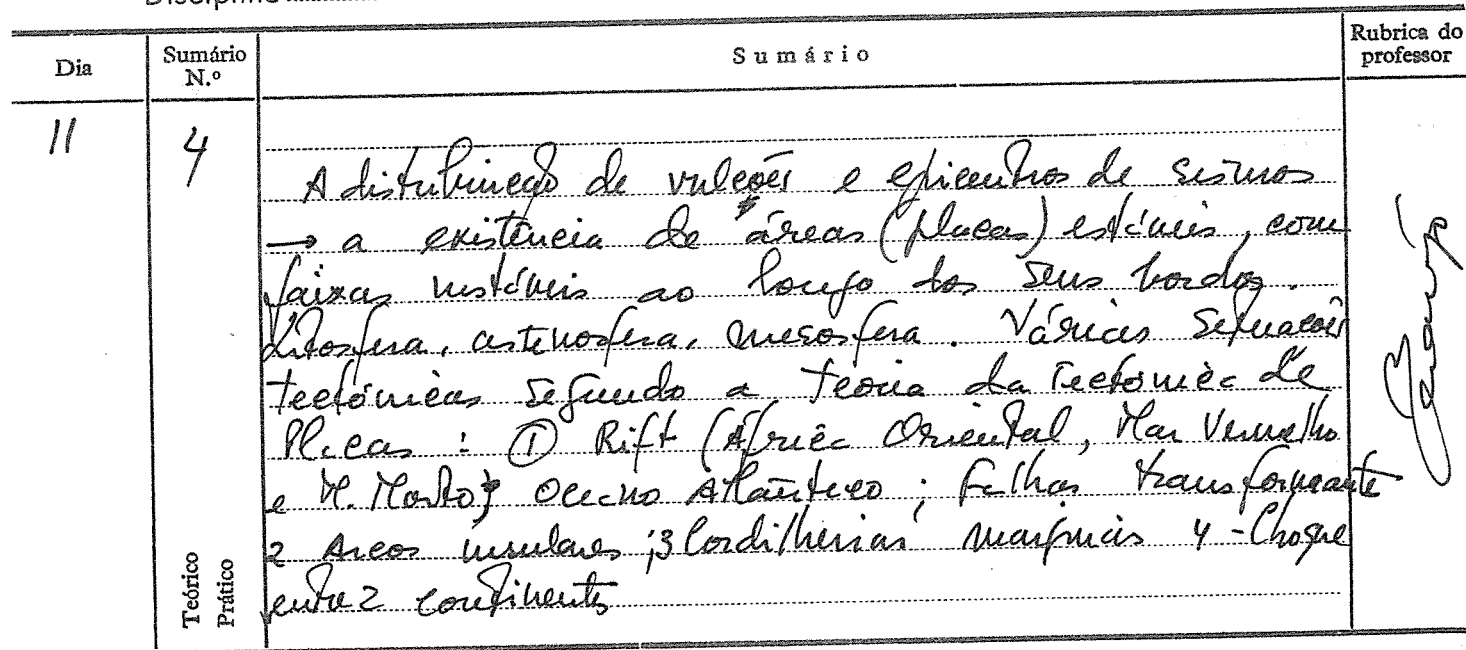 Dia
Sumário N.º
Sumário
Rubrica do professor
11
4
A distribuição de vulcões e epicentros de sismos
→ a existência de áreas (placas) estáveis, com
faixas instáveis ao longo dos seus bordos.
Litosfera, astenosfera, mesosfera. Várias situações
tectónicas segundo a teoria da Tectónica de
Placas : ① Rift (África Oriental, Mar Vermelho
e M. Morto) Oceano Atlântico ; falhas transformante
2 Arcos insulares ; 3 Cordilheiras marginais 4 - Choque
entre 2 continentes
Teórico
Prático